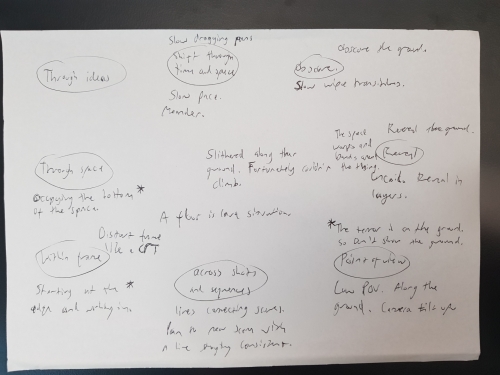 Slow dragging pans
Shift through
time and space
Slow pace.
Meander.
obscure the ground.
Obscure.
Slow wipe transitions.
Through ideas
Through space
Occupying the bottom *
of the space.
Slithered along the
ground. Fortunately couldn't
climb.
The space
warps and
the thing
Reveal the ground.
Reveal
Reveal in
layers.
A floor is lava situation
Distort frame
like a CRT
Within frame
Starting at the *
edge and working in.
across shots
and sequences
lines connecting scenes.
Pan to new scene with
a line staying consistent.
*The terror is on the ground.
so don't show the ground.
Point of view
Low POV. Along the
ground. Camera tilts up